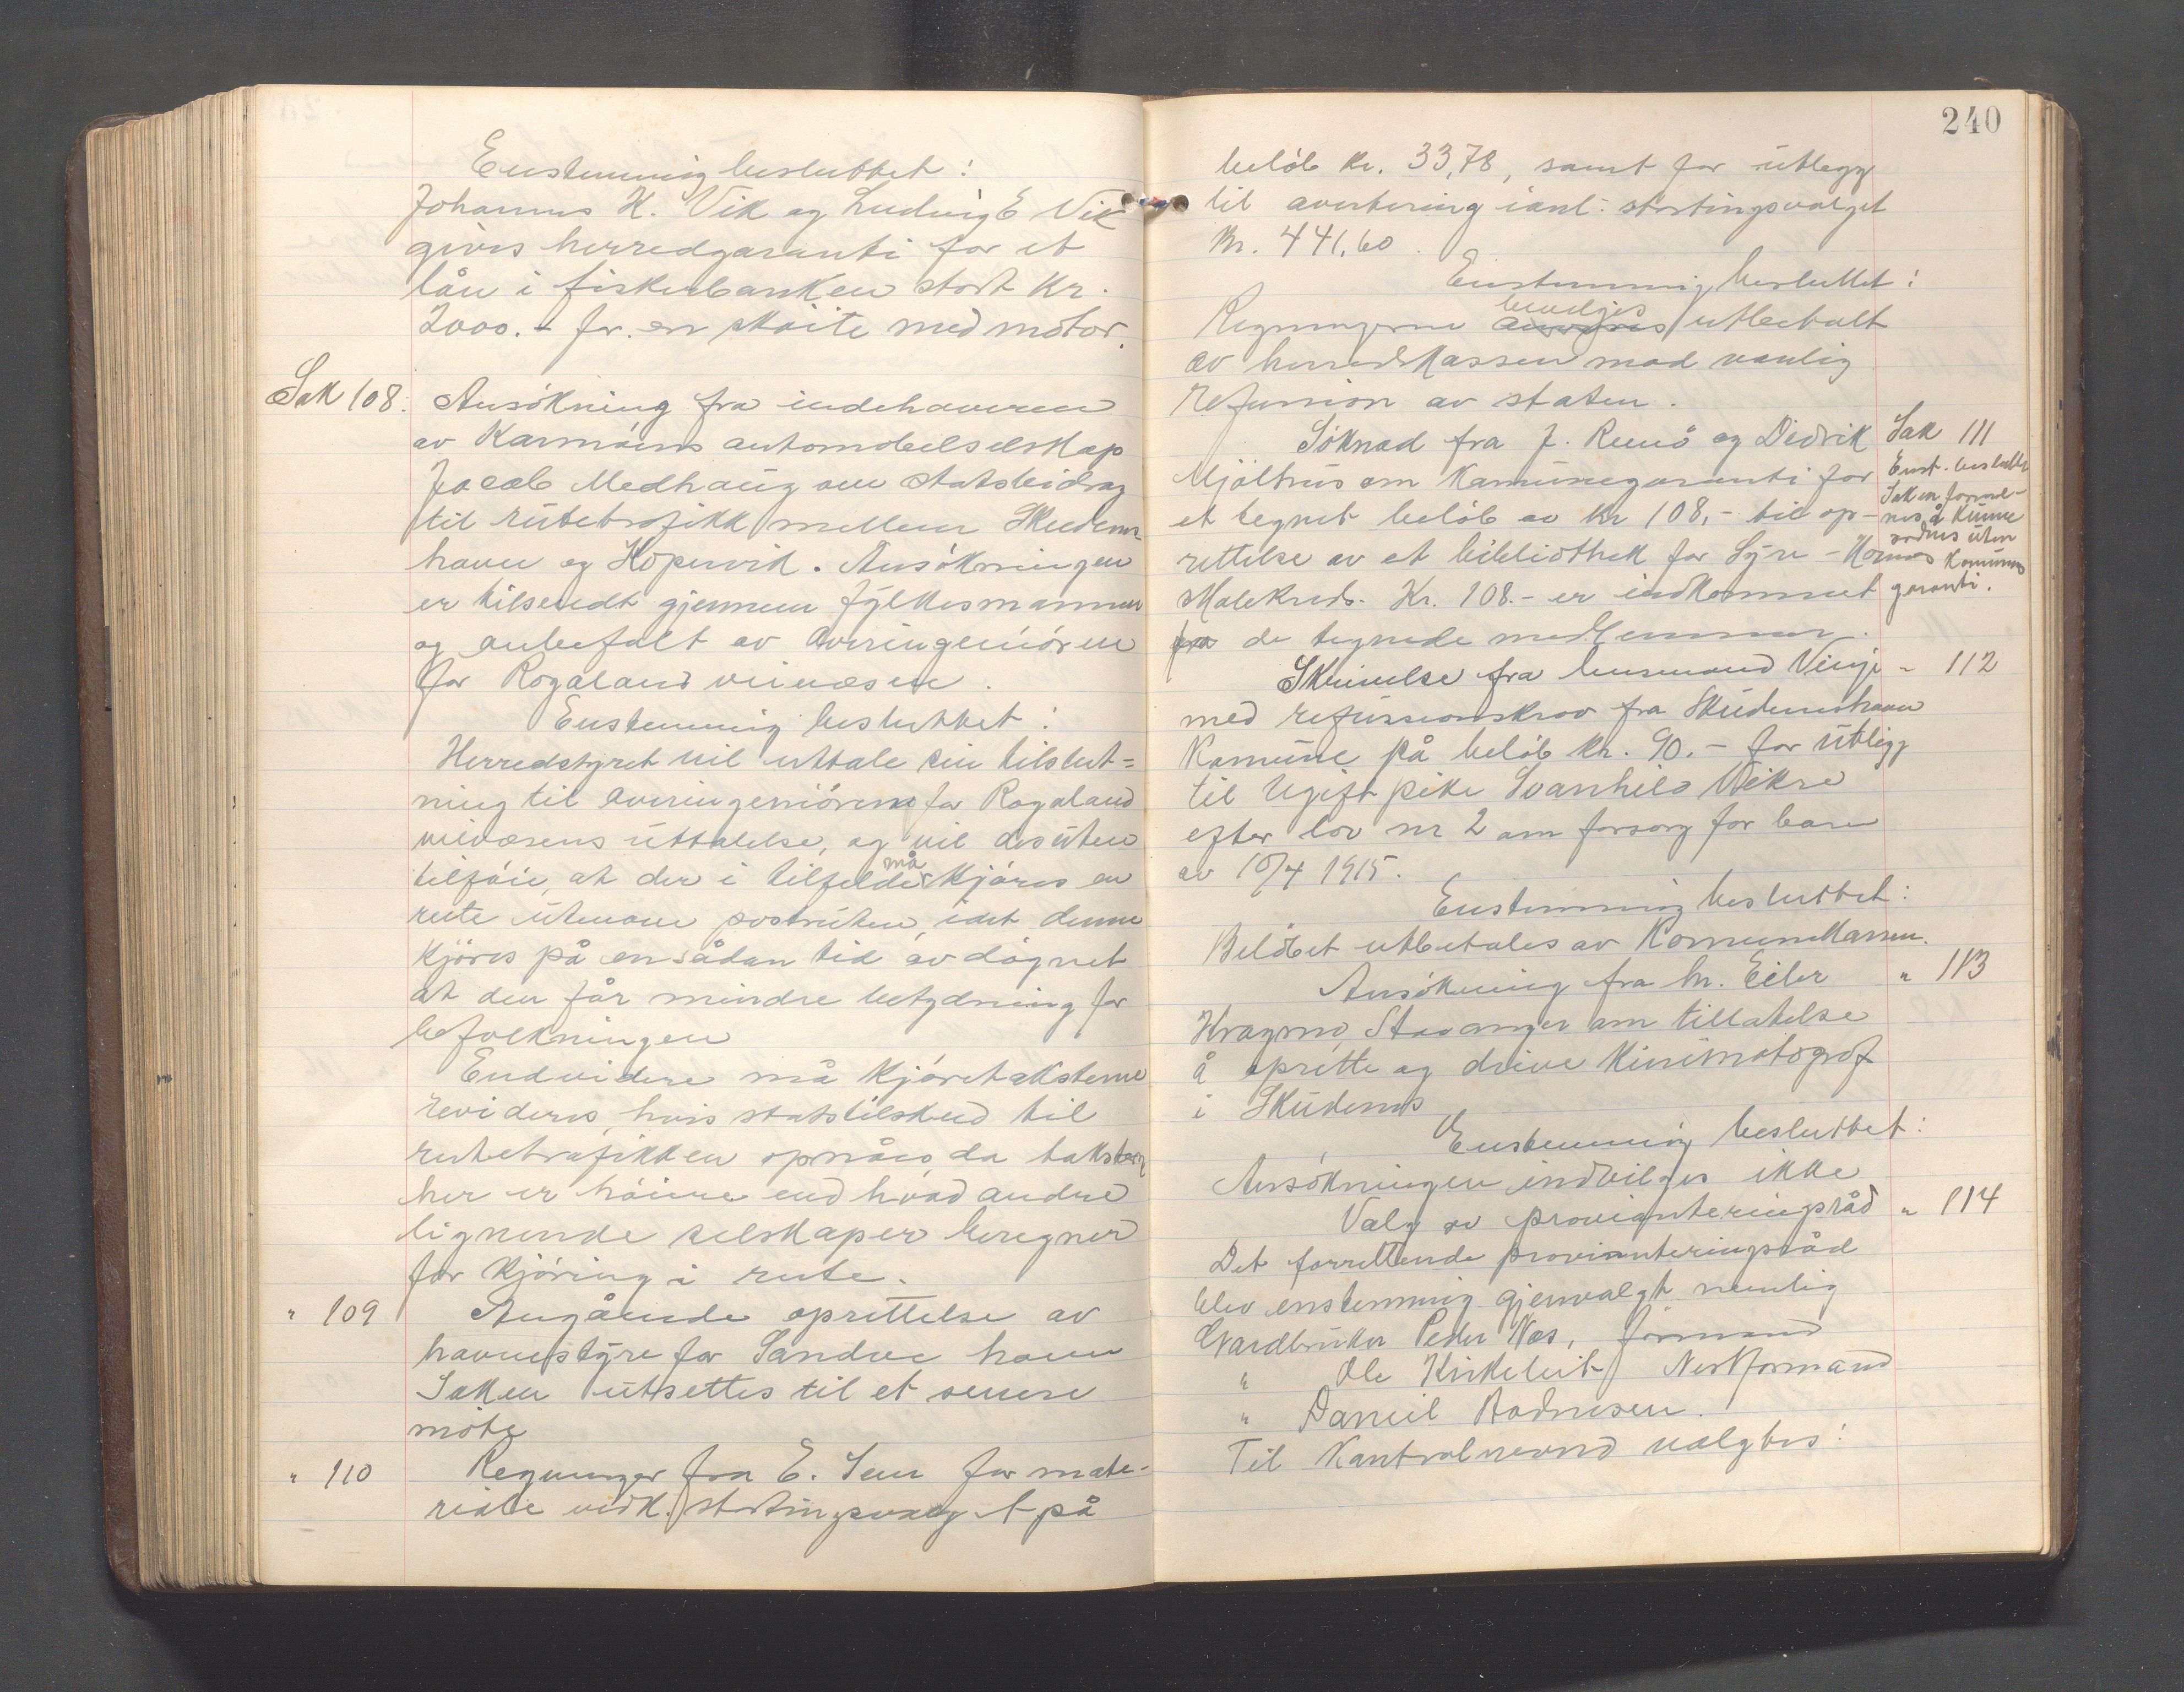 Enstemmig besluttet:
Johannes H. Vik og Ludvig E Vik
gives herredgaranti for et
lån i fiskerbanken stort kr.
2000.- for en skøite med motor.
Sak 108. Ansøkning fra indehaveren
av Karmøens automobilselskap
Jacob Medhaug om statsbidrag
til rutetrafikk mellem Skudenes-
havn og Kopervik. Ansøkningen
er tilsendt gjennem fylkesmannen
og anbefalt av overingeniøren
for Rogaland veivæsen.
Enstemmig besluttet:
Herredstyret vil uttale sin tilslut=
ning til overingeniørens for Rogaland
veivæsens uttalelse, og vil desuten
tilføie, at der i tilfelde må kjøres en
rute utenom postruten, idet denne
kjøres på en sådan tid av døgnet
at den får mindre betydning for
befolkningen
Endvidere må kjøretaksterne
revideres, hvis statstilskud til
rutetrafikken opnåes, da takstene
her er høiere end hvad andre
lignende selskaper beregner
for kjøring i rute.
" 109 Angående oprettelse av
havnestyre for Sandve havn
Saken utsettes til et senere
møte
" 110 Regninger fra E. Sem for mate-
riale vedk. stortingsvalget på
240
beløb kr. 33,78, samt for utlegg
til avertering i anl. stortingsvalget
kr. 441,60.
Enstemmig besluttet:
bevilges
Regningerne utbetalt
av herredskassen mod vanlig
refusion av staten.
Søknad fra J. Remø og Didrik Sak 111
Mjølhus om Kommunegaranti for Enst. besluttet
et tegnet beløb av kr 108,- til op- Saken formenes å kunne
rettelse av et bibliothek for Syre - ordnes uten Komunegaranti.
Skolekreds. Kr. 108.- er indkommet
fra de tegnede medlemmer.
Skrivelse fra lensmand Vinje " 112
med refusionskrav fra Skudeneshavn
Komune på beløb kr. 90.- for utlegg
til Ugift pike Svanhild Vikre
efter lov nr 2 om forsorg for barn
av 10/4 1915.
Enstemmig besluttet:
Beløbet utbetales av Komunekassen.
Ansøkning fra hr. Eiler " 113
Kragmo, Stavanger om tillatelse
å oprette og drive Kinematograf
i Skudenes
Enstemmig besluttet:
Ansøkningen indvilges ikke
Valg av provianteringsråd " 114
Det forrettende provianteringsråd
blev enstemmig gjenvalgt nemlig
Gardbruker Peder Næs, formand
" Ole Kirkeleit Nestformand
" Daniel Aadnesen.
Til Kontrolnevnd valgtes: